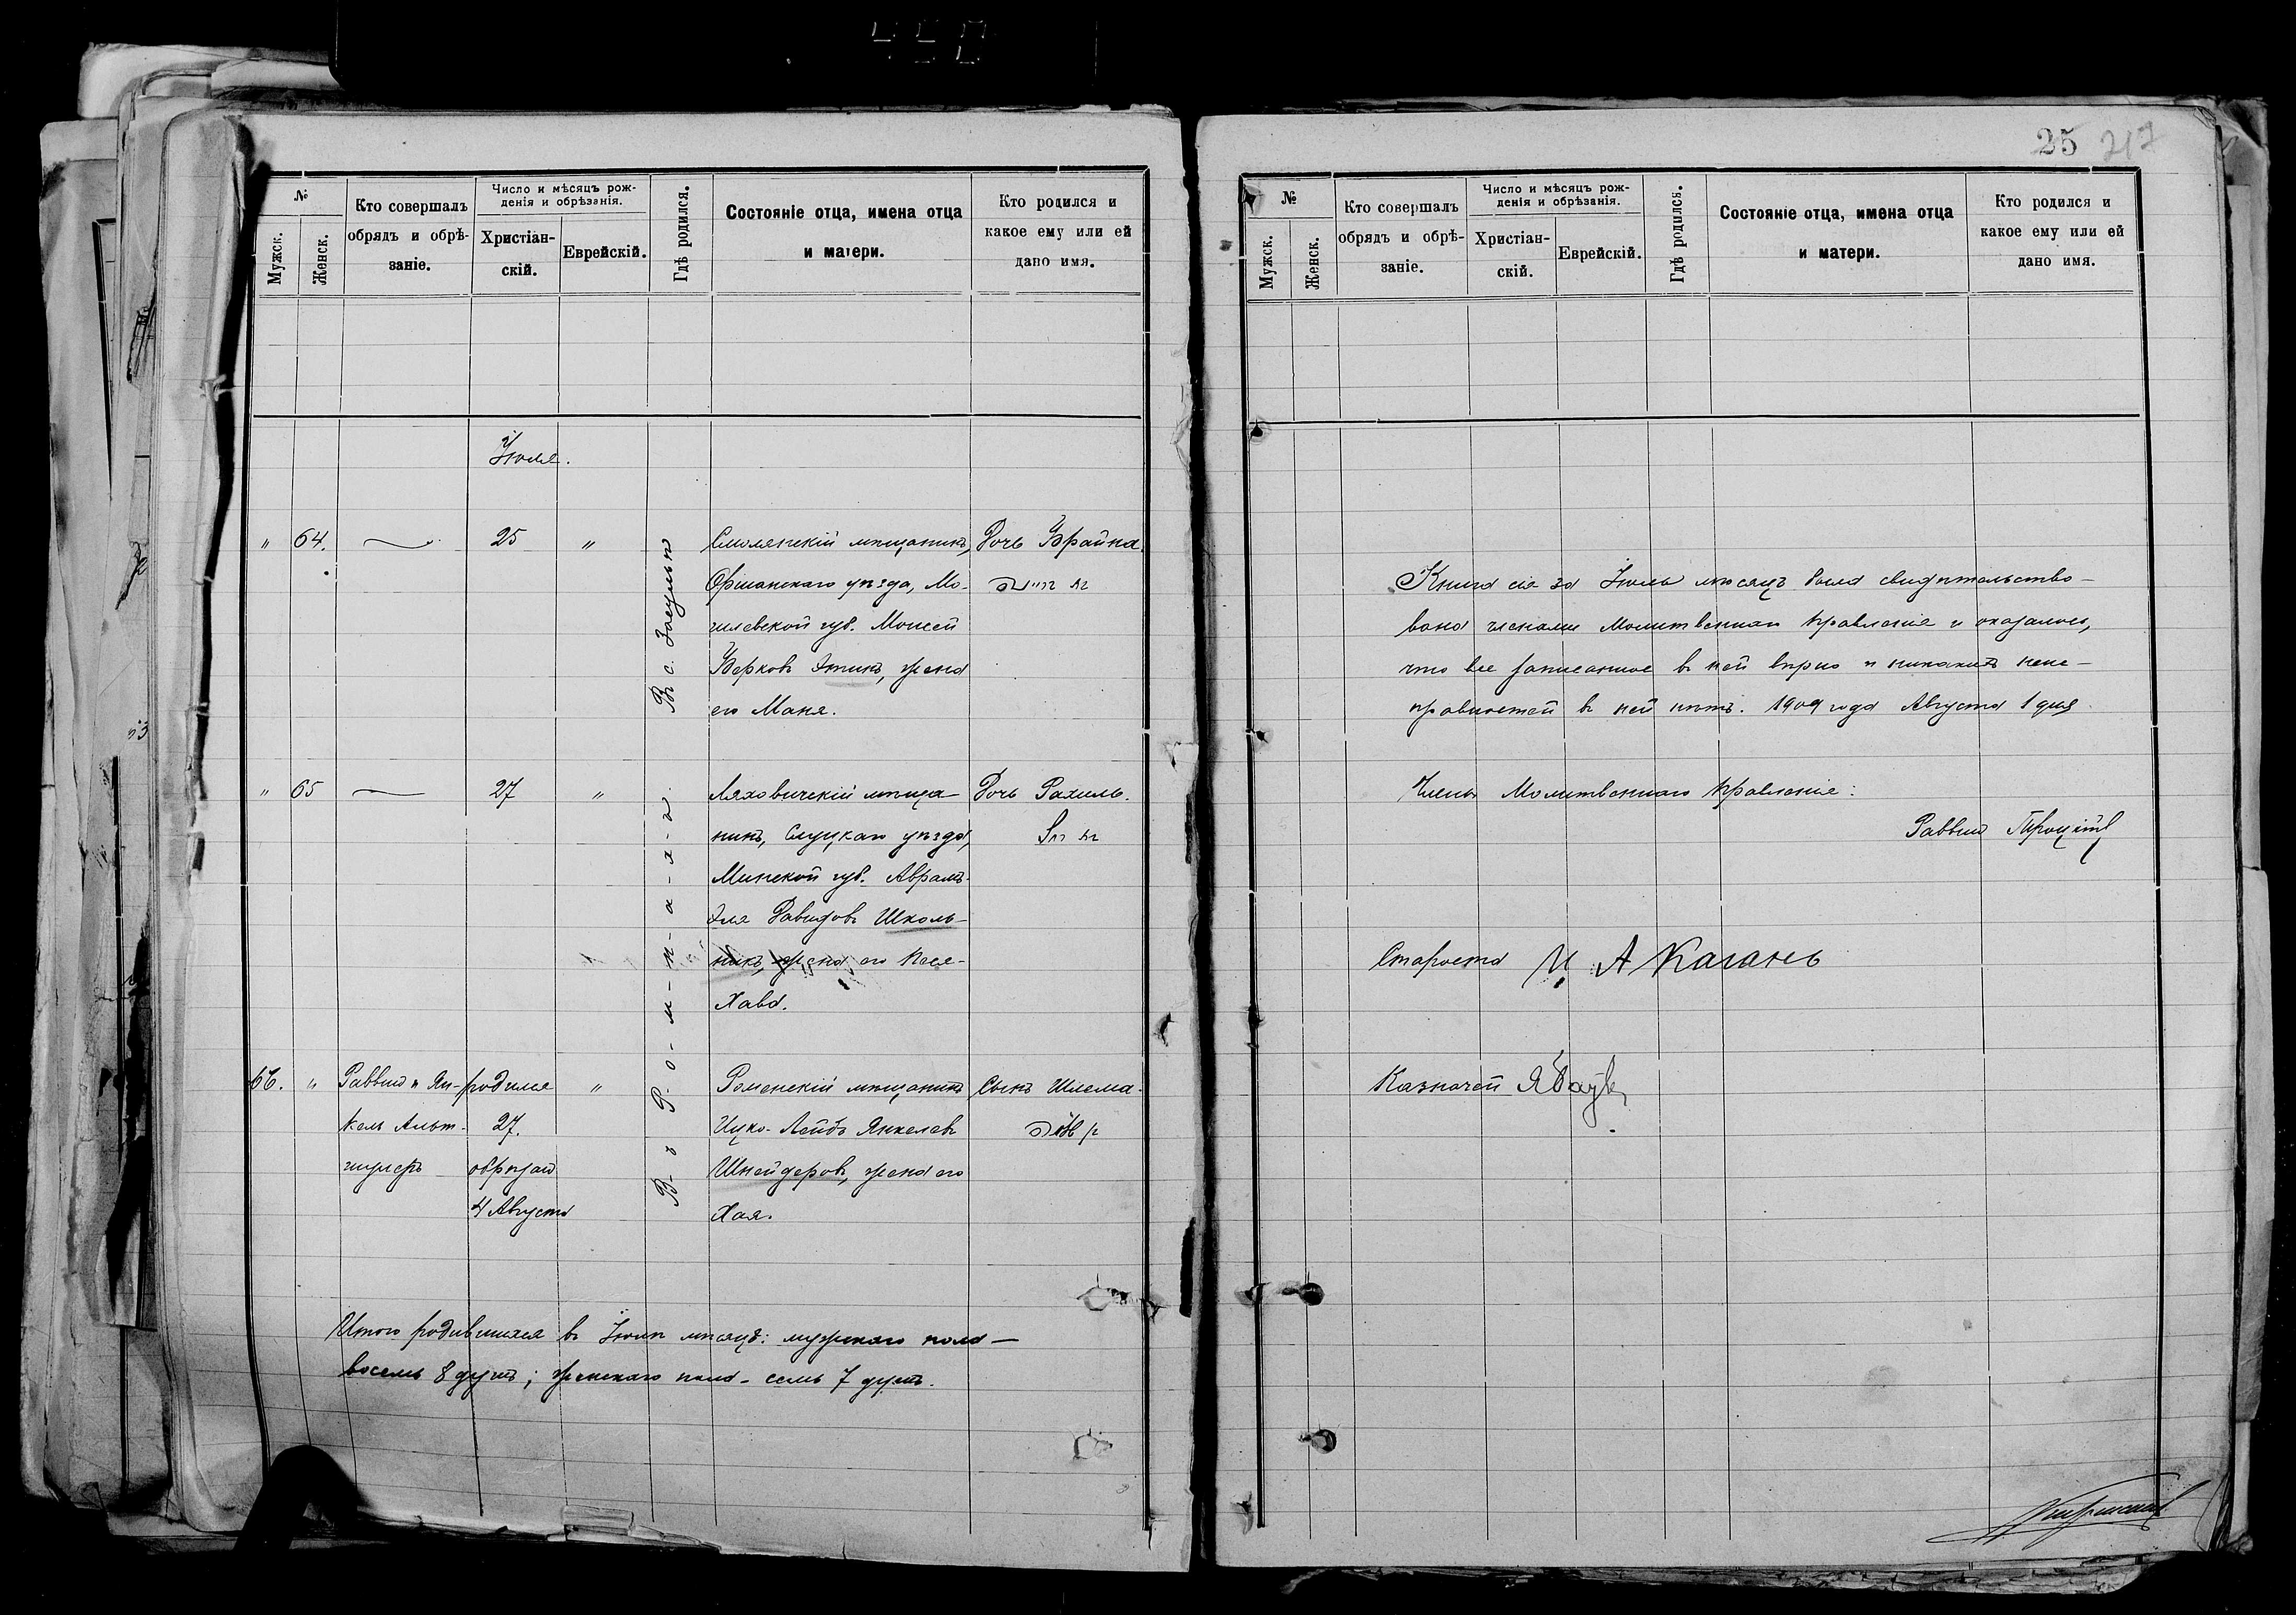 №
Мужск.
Женск.
Кто совершалъ
обрядъ и обрѣ-
заніе.
Число и мѣсяцъ рож-
денія и обрѣзанія.
Христіан-
скій.
Еврейскій.
Гдѣ родился.
Состояніе отца, имена отца
и матери.
Кто родился и
какое ему или ей
дано имя.
Іюля.
" 64. 25 " Смолянскій мѣщанинъ, Дочь Брайна.
Оршанскаго уѣзда, Мо-
гилевской губ. Моисей
Берковъ Этинъ, жена
его Маня.
" 65 27 " Ляховичскій мѣща- Дочь Рахиль.
нинъ, Слуцкаго уѣзда,
Минской губ. Абрамъ-
Эля Давидовъ Школь-
никъ, жена его Песя-
Хава.
66. " Раввинъ и Ян- родился " Роменскій мѣщанинъ Сынъ Шлема.
кель Альт- 27. Ицко-Лейбъ Янкелевъ
шулеръ обрѣзан Шнейдеровъ, жена его
4 Августа Хая.
Въ с. Засульи
В-ъ Р-о-м-н-а-х-ъ
Итого родившихся въ Іюлѣ мѣсяцѣ: мужского пола —
восемь 8 душъ; женскаго пола - семь 7 душъ.
25 217
№
Мужск.
Женск.
Кто совершалъ
обрядъ и обрѣ-
заніе.
Число и мѣсяцъ рож-
денія и обрѣзанія.
Христіан-
скій.
Еврейскій.
Гдѣ родился.
Состояніе отца, имена отца
и матери.
Кто родился и
какое ему или ей
дано имя.
Книга сія за Іюль мѣсяцъ была свидѣтельство-
вана членами Молитвеннаго Правленія и оказалось,
что все записанное въ ней вѣрно и никакихъ неис-
правностей въ ней нѣтъ. 1909 года Августа 1 дня
Члены Молитвеннаго Правленія:
Раввинъ
Староста И. А Каганъ
Казначей